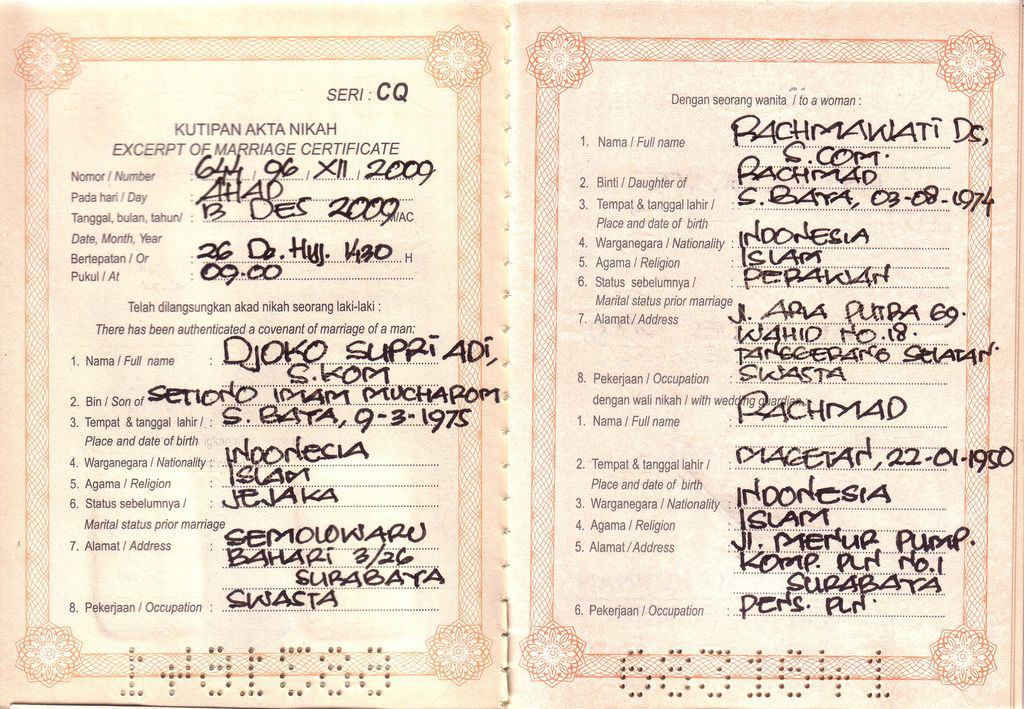 SERI : CQ
KUTIPAN AKTA NIKAH
EXCERPT OF MARRIAGE CERTIFICATE
Nomor / Number : 644 / 96 / XII / 2009
Pada hari / Day : AHAD
Tanggal, bulan, tahun/ : 13 DES 2009 M/AC
Date, Month, Year
Bertepatan / Or : 26 Dz. Hijj. 1430 H
Pukul / At : 09.00
Telah dilangsungkan akad nikah seorang laki-laki :
There has been authenticated a covenant of marriage of a man:
1. Nama / Full name : DJOKO SUPRIADI,
S.KOM
2. Bin / Son of SETIONO IMAM MUCHAROM
3. Tempat & tanggal lahir / : S. BAYA, 9-3-1975
Place and date of birth
4. Warganegara / Nationality : INDONESIA
5. Agama / Religion : ISLAM
6. Status sebelumnya / : JEJAKA
Marital status prior marriage
7. Alamat / Address : SEMOLOWARU
BAHARI 3/26
SURABAYA
8. Pekerjaan / Occupation : SWASTA
Dengan seorang wanita / to a woman :
1. Nama / Full name RACHMAWATI DS,
S.COM.
2. Binti / Daughter of : RACHMAD
3. Tempat & tanggal lahir / : S. BAYA, 03-08-1974
Place and date of birth
4. Warganegara / Nationality : INDONESIA
5. Agama / Religion : ISLAM
6. Status sebelumnya / : PERAWAN
Marital status prior marriage
7. Alamat / Address : Jl. ARIA PUTRA 69.
WAHID NO.18.
TANGGERANG SELATAN.
8. Pekerjaan / Occupation : SWASTA
dengan wali nikah / with wedding guardian :
1. Nama / Full name : RACHMAD
2. Tempat & tanggal lahir / : MAGETAN, 22-01-1950
Place and date of birth
3. Warganegara / Nationality : INDONESIA
4. Agama / Religion : ISLAM
5. Alamat / Address : Jl. MENUR PUMP.
KOMP. PLN NO.1
SURABAYA
6. Pekerjaan / Occupation : PENS. PLN.